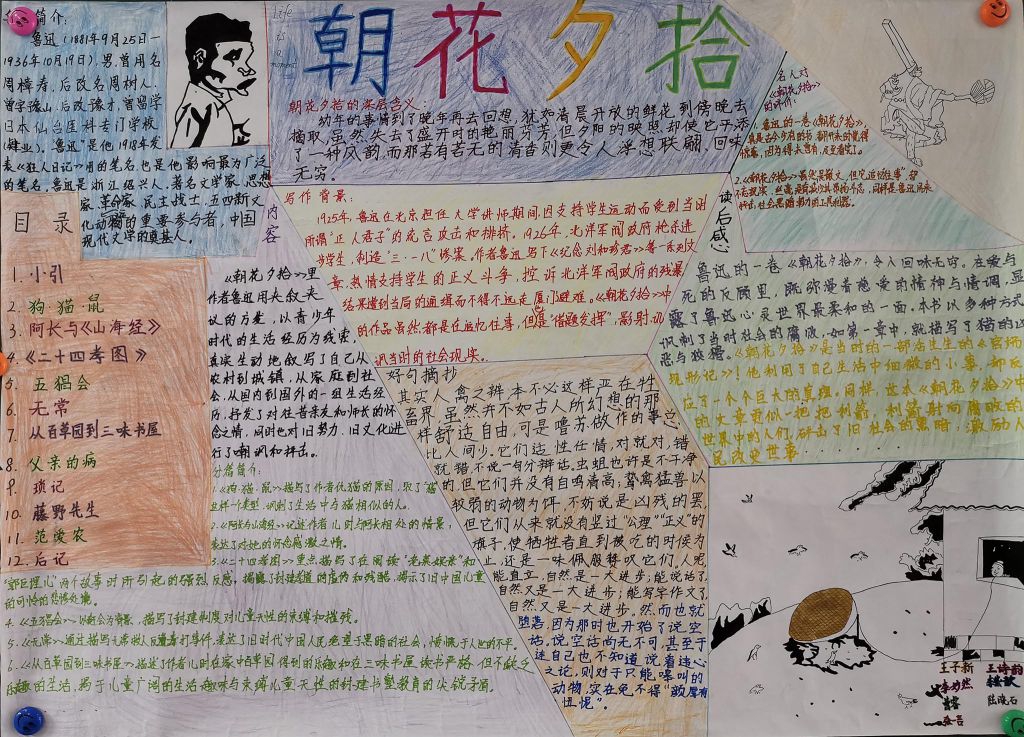 简介:
鲁迅(1881年9月25日一
1936年10月19日),男,曾用名
周樟寿,后改名周树人,
曾字豫山,后改豫才,曾留学
日本仙台医科专门学校
(肄业),"鲁迅"是他1918年发
表《狂人日记》用的笔名,也是他影响最为广泛
的笔名,鲁迅是浙江绍兴人。著名文学家,思想
家,革命家,民主战士,五四新文
化动的重要参与者,中国
现代文学的奠基人。
Life
is
a
moment
朝花夕拾
朝花夕拾的深层含义:
幼年的事情到了晚年再去回想,犹如清晨开放的鲜花到傍晚去
摘取,虽然失去了盛开时的艳丽芬芳,但夕阳的映照却使它平添
了一种风韵,而那若有若无的清香则更令人浮想联翩、回味
无穷。
名人对
《朝花夕拾》
的评价:
鲁迅的一卷《朝花夕拾》,
2.《朝花夕拾》虽然是散文,但它追忆往事",却
目录
1. 小引
2. 狗·猫·鼠
3. 阿长与《山海经》
4.《二十四孝图》
5. 五猖会
6. 无常
7. 从百草园到三味书屋
8. 父亲的病
9. 琐记
10. 藤野先生
11. 范爱农
12. 后记
内容
《朝花夕拾》里
作者鲁迅用长叙夹
议的方差,以青少年
时代的生活经历为线索,
真实生动地叙写了自己从
农村到城镇,从家庭到社
会,从国内到国外的一组生活经
历,抒发了对往昔亲友和师长的怀
念之情,同时也对旧势力、旧文化进
行了嘲讽和抨击。
写作背景:
1925年,鲁迅在北京担任大学讲师期间,因支持学生运动而受到当时
所谓"正人君子"的流言攻击和排挤。1926年,北洋军阀政府枪杀进
步学生,制造"三·一八"惨案。作者鲁迅写下《纪念刘和珍君》等一系列文
章,热情支持学生的正义斗争,控诉北洋军阀政府的残暴,
结果遭到当局的通缉而不得不远走厦门避难。《朝花夕拾》中
的作品虽然都是在追忆往事,但是"借题发挥",影射、讥
讽当时的社会现实。
读后感
鲁迅的一卷《朝花夕拾》,令人回味无穷。在爱与
死的反顾里,既弥漫着慈爱的精神与情调,显
露了鲁迅心灵世界最柔和的一面,本书以多种方式
讽刺了当时社会的腐败,如第一章中,就描写了猫的凶
恶与狡猾。《朝花夕拾》是当时的一部活生生的《官场
现形记》!他利用了自己生活中细微的小事,却反
应了一个个巨大的真理。同样,这本《朝花夕拾》中
的文章更似一把把利箭,利箭射向腐败的
世界中的人们,砰击了旧社会的黑暗;激励人
民改史世事
好句摘抄
其实人禽之辨,本不必这样严,在牲
畜界,虽然并不如古人所幻想的那
样舒适自由,可是噜苏做作的事总
比人间少。它们适性任情,对就对,错
就错,不说一句分辩话。虫蛆也许是不干净
的,但它们并没有自鸣清高;鸷禽猛兽以
较弱的动物为饵,不妨说是凶残的罢,
但它们从来就没有竖过"公理""正义"的
旗子,使牺牲者直到被吃的时候为
止,还是一味佩服赞叹它们。人呢,
能直立,自然是一大进步;能说话了,
自然又是一大进步;能写字作文了,
自然又是一大进步。然而也就
堕落,因为那时也开始了说空
话。说空话尚无不可,甚至于
连自己也不知道说着违心
之论,则对于只能嗥叫的
动物,实在免不得"颜厚有
忸怩"。
分卷简介:
1.《狗·猫·鼠》描写了作者仇猫的原因,取了"猫"
这样一个类型,讽刺了生活中与猫相似的人。
2.《阿长与山海经》记述作者儿时与阿长相处的情景,
表达了对她的怀念感激之情。
3.《二十四孝图》重点描写了在阅读"老莱娱亲"和
"郭巨埋儿"两个故事时所引起的强烈反感,揭露了封建孝道的虚伪和残酷,揭示了旧中国儿童
的可怜的悲惨处境。
4.《五猖会》描写了封建制度对儿童天性的束缚和摧残。
5.《无常》
6.《从百草园到三味书屋》描述了作者儿时在家中百草园得到的乐趣和在三味书屋读书严格但不缺乏
乐趣的生活,揭示儿童广阔的生活趣味与束缚儿童天性的封建书塾教育的尖锐矛盾。
王子新